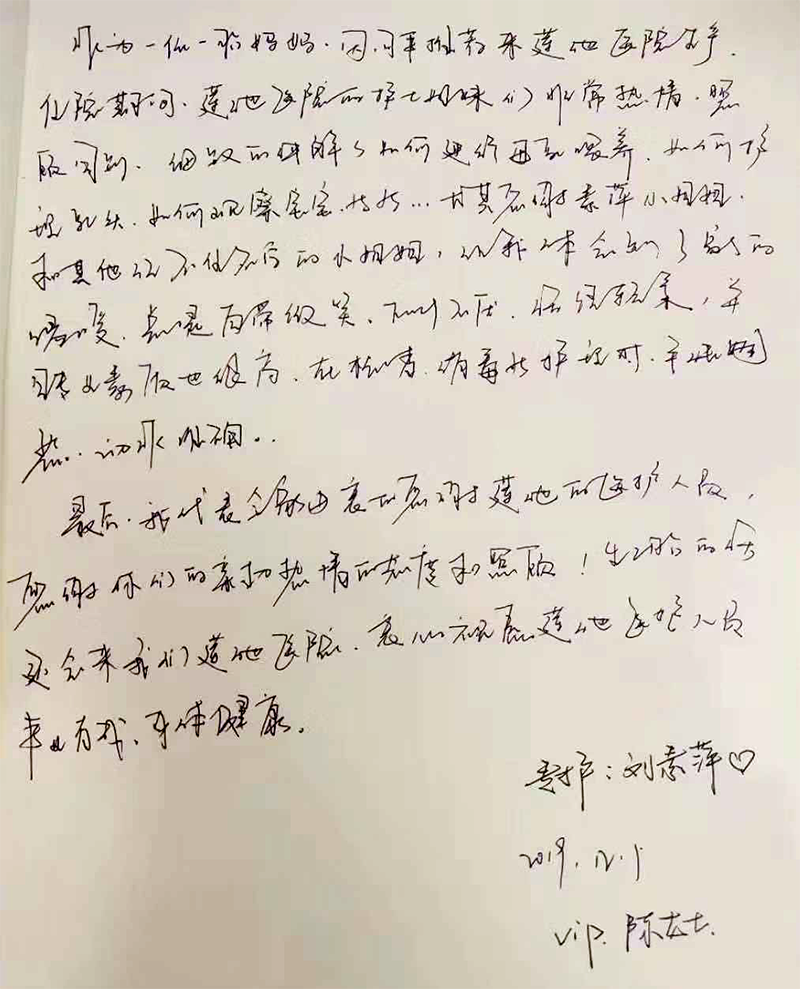 作为一位一胎妈妈.因同事推荐来莲池医院生产.
住院期间.莲池医院的护士姐妹们非常热情.照
顾周到.细致的讲解了如何进行母乳喂养.如何护
理乳头.如何观察宝宝.等等...尤其感谢素萍小姐姐.
和其他记不住名字的小姐姐,让我体会到了家的
温暖.总是面带微笑、不厌
专业素质也很高.在检查.病毒护理时.
恭..
最后.我代表全家由衷的感谢莲池的医护人员,
感谢你们的亲切热情的态度和照顾!生二胎的
还会来我们莲池医院.衷心祝愿莲池医护人员
事业有成、身体健康。
责护:刘素萍♡
2019.12.1
vip.陈女士.